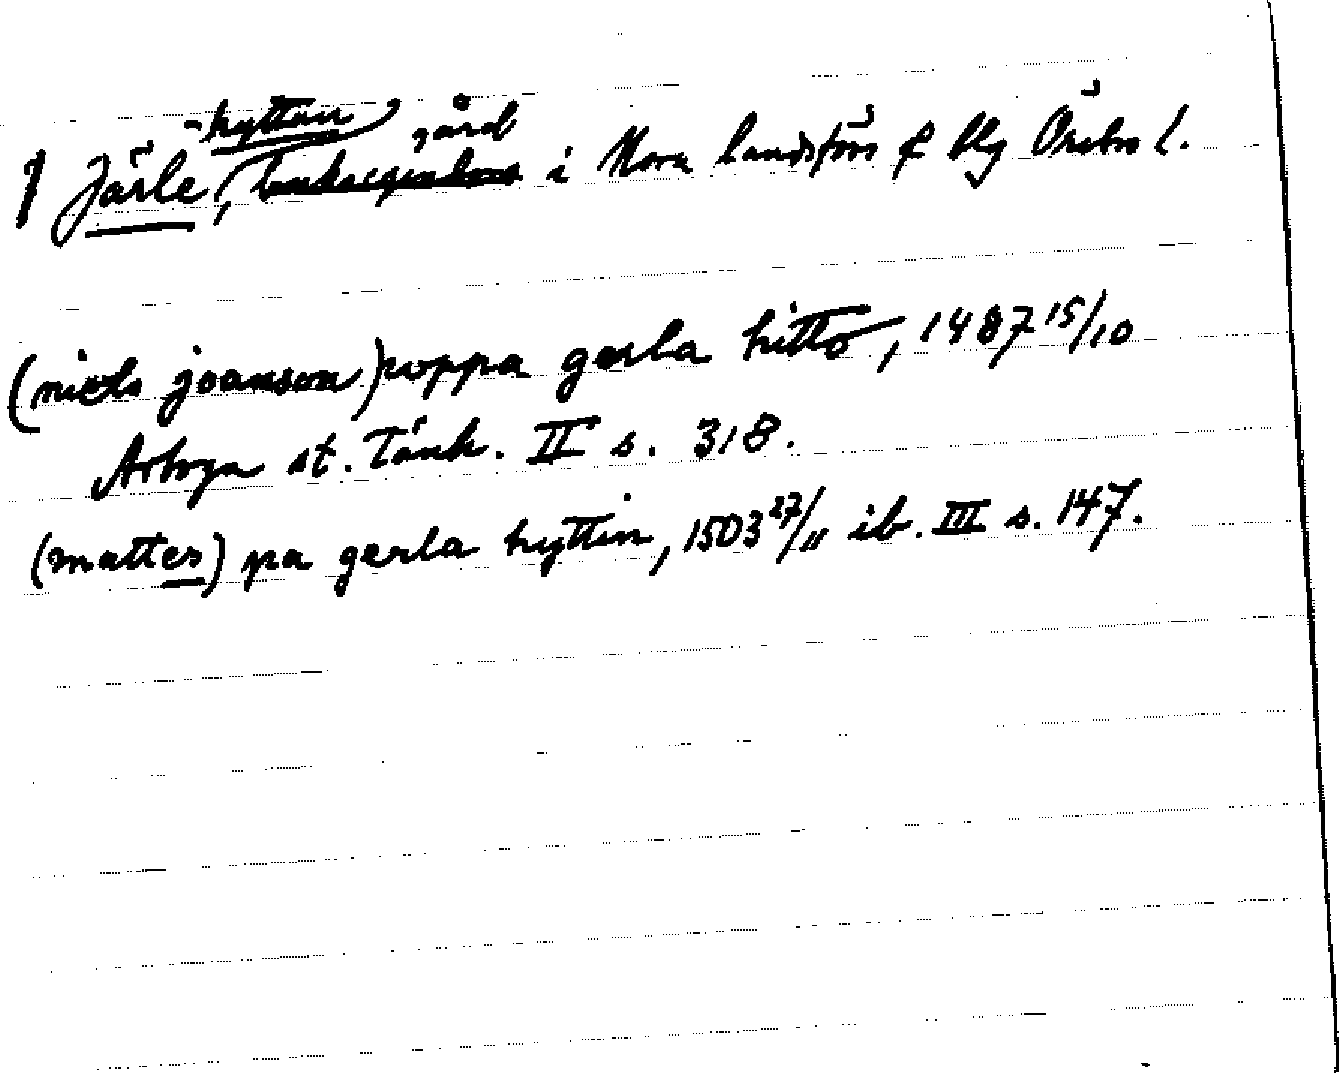 Järle -hyttan, gård i Nora landsförs f Vby Örebro l.
(niels joanson) uppa gerla hitto, 1487 15/10
Arboga st. Tänk. II s. 318.
(mattes) pa gerla hyttin, 1503 27/11 ib. III s. 147.